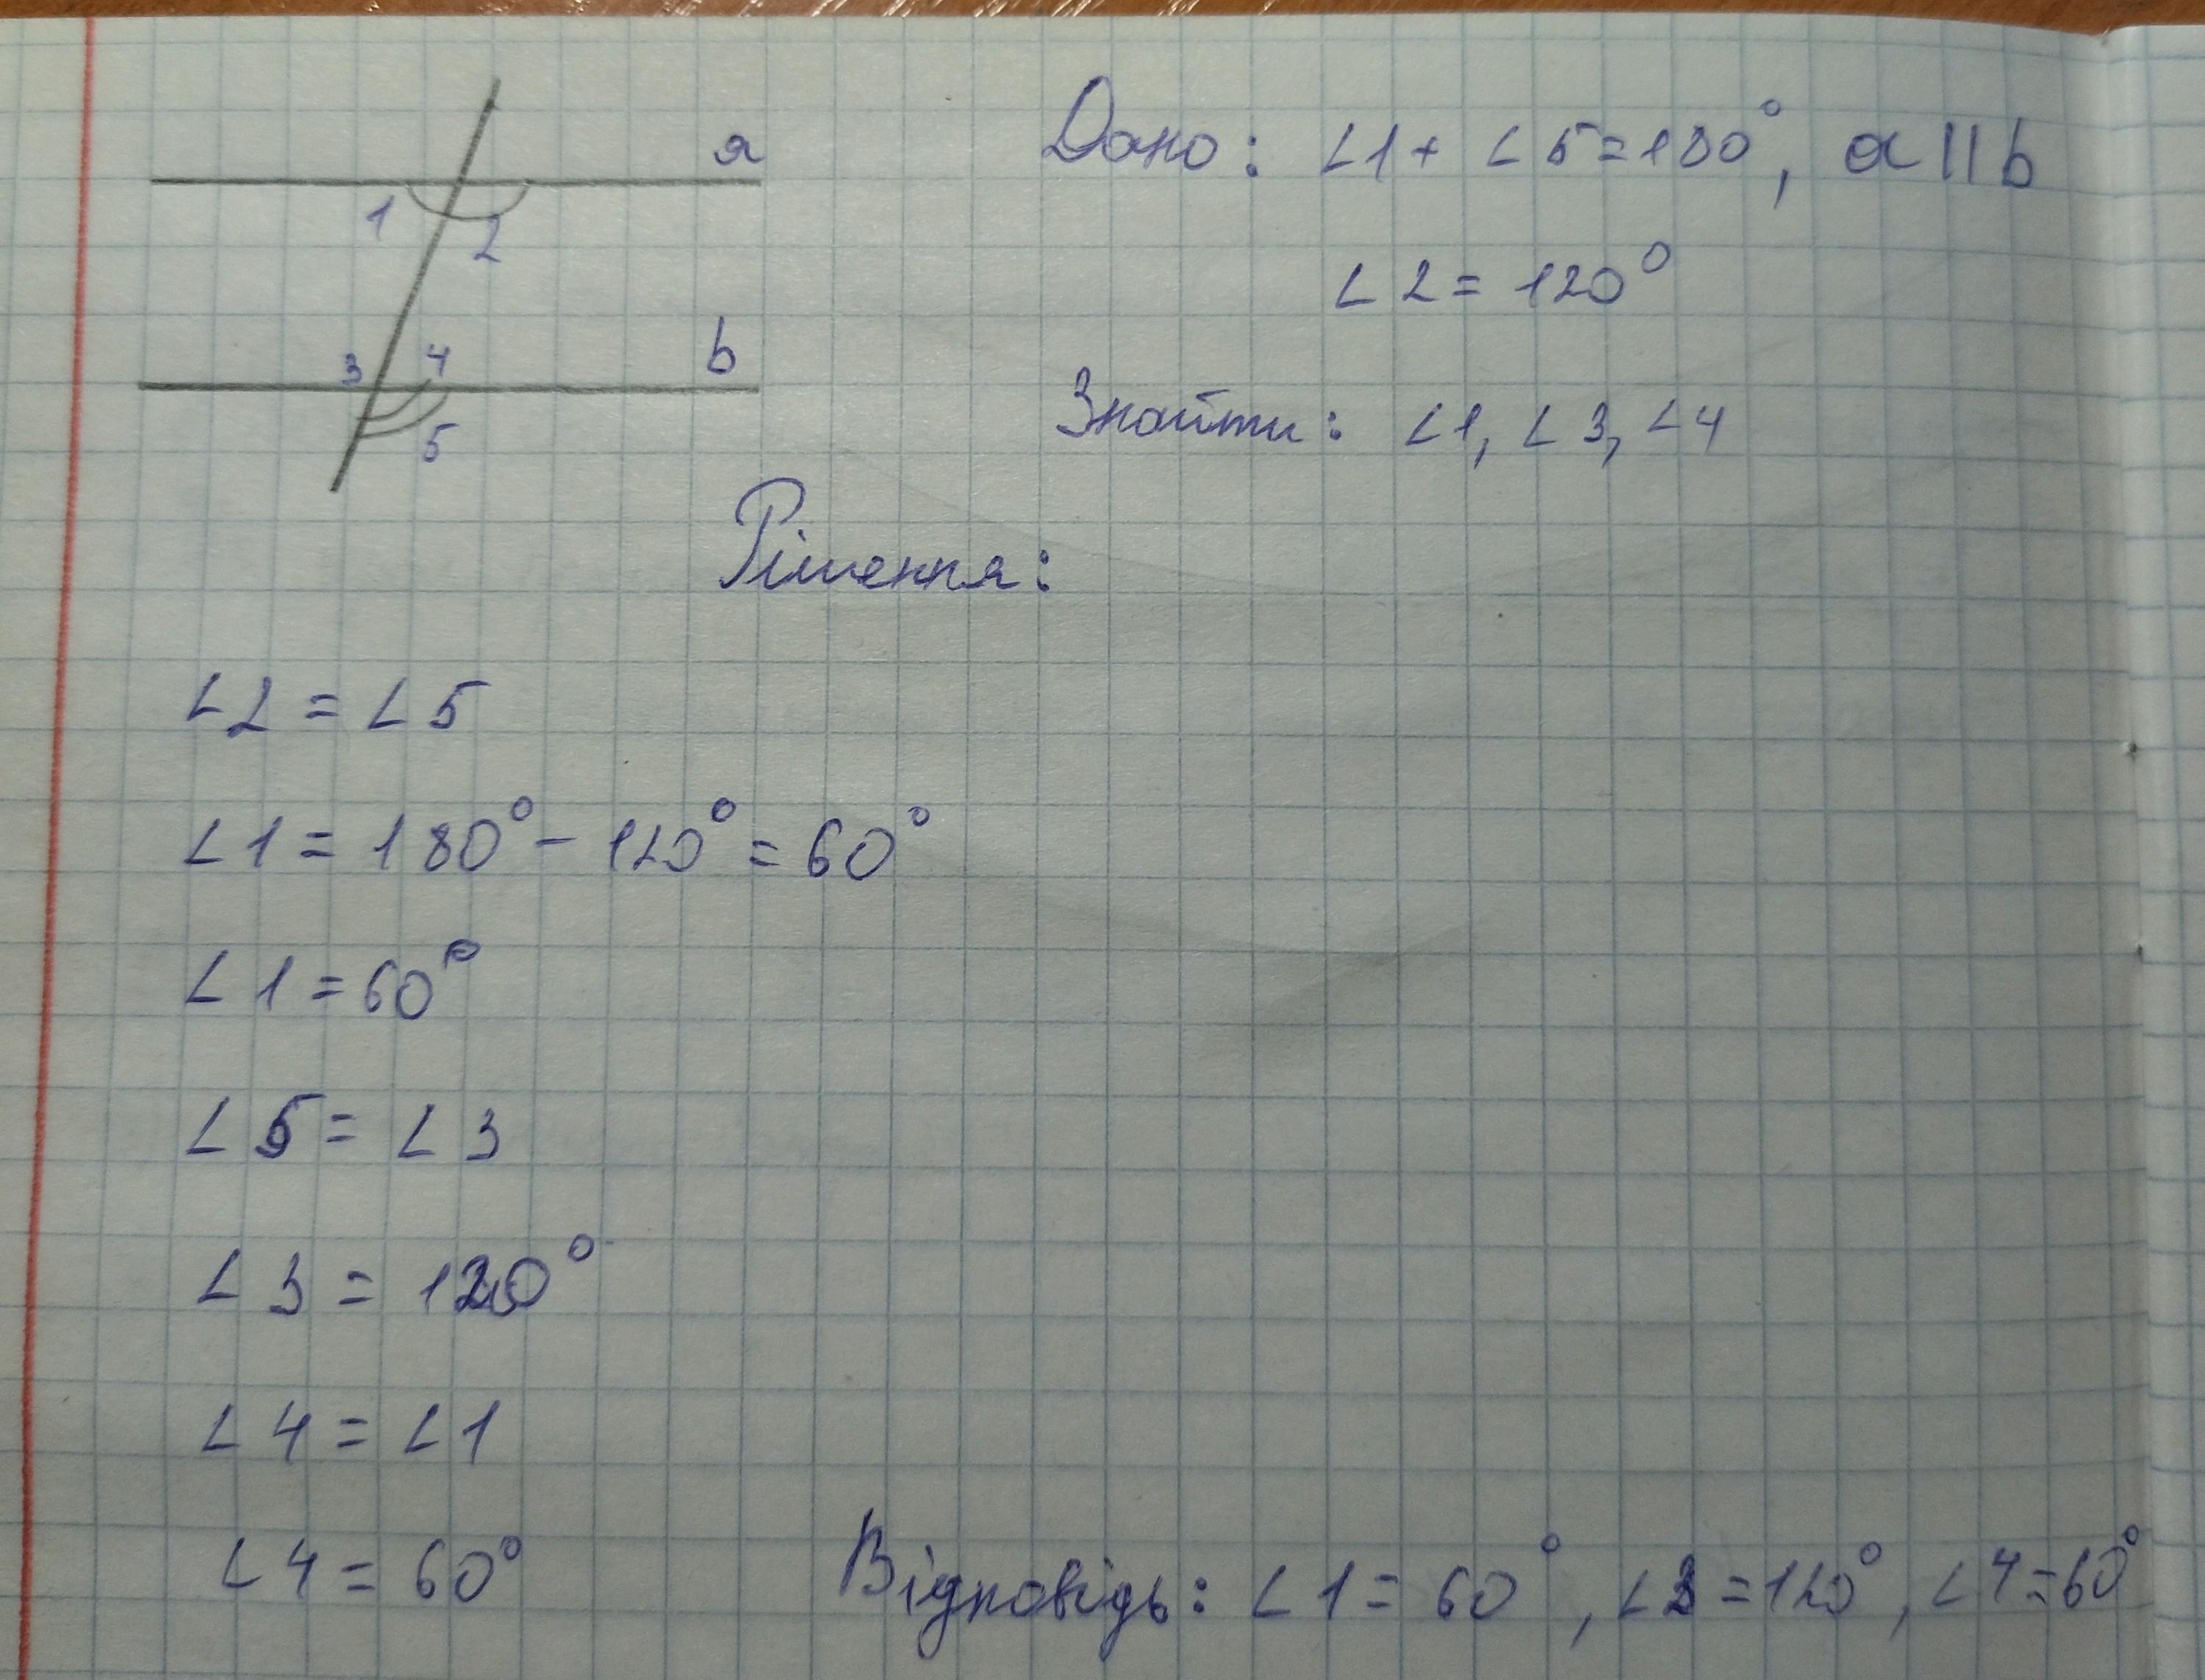 a
1 2
3 4 b
5
Дано: ∠1 + ∠5 = 180°, a || b
∠2 = 120°
Знайти: ∠1, ∠3, ∠4
Рішення:
∠2 = ∠5
∠1 = 180° - 120° = 60°
∠1 = 60°
∠5 = ∠3
∠3 = 120°
∠4 = ∠1
∠4 = 60°
Відповідь: ∠1 = 60°, ∠3 = 120°, ∠4 = 60°